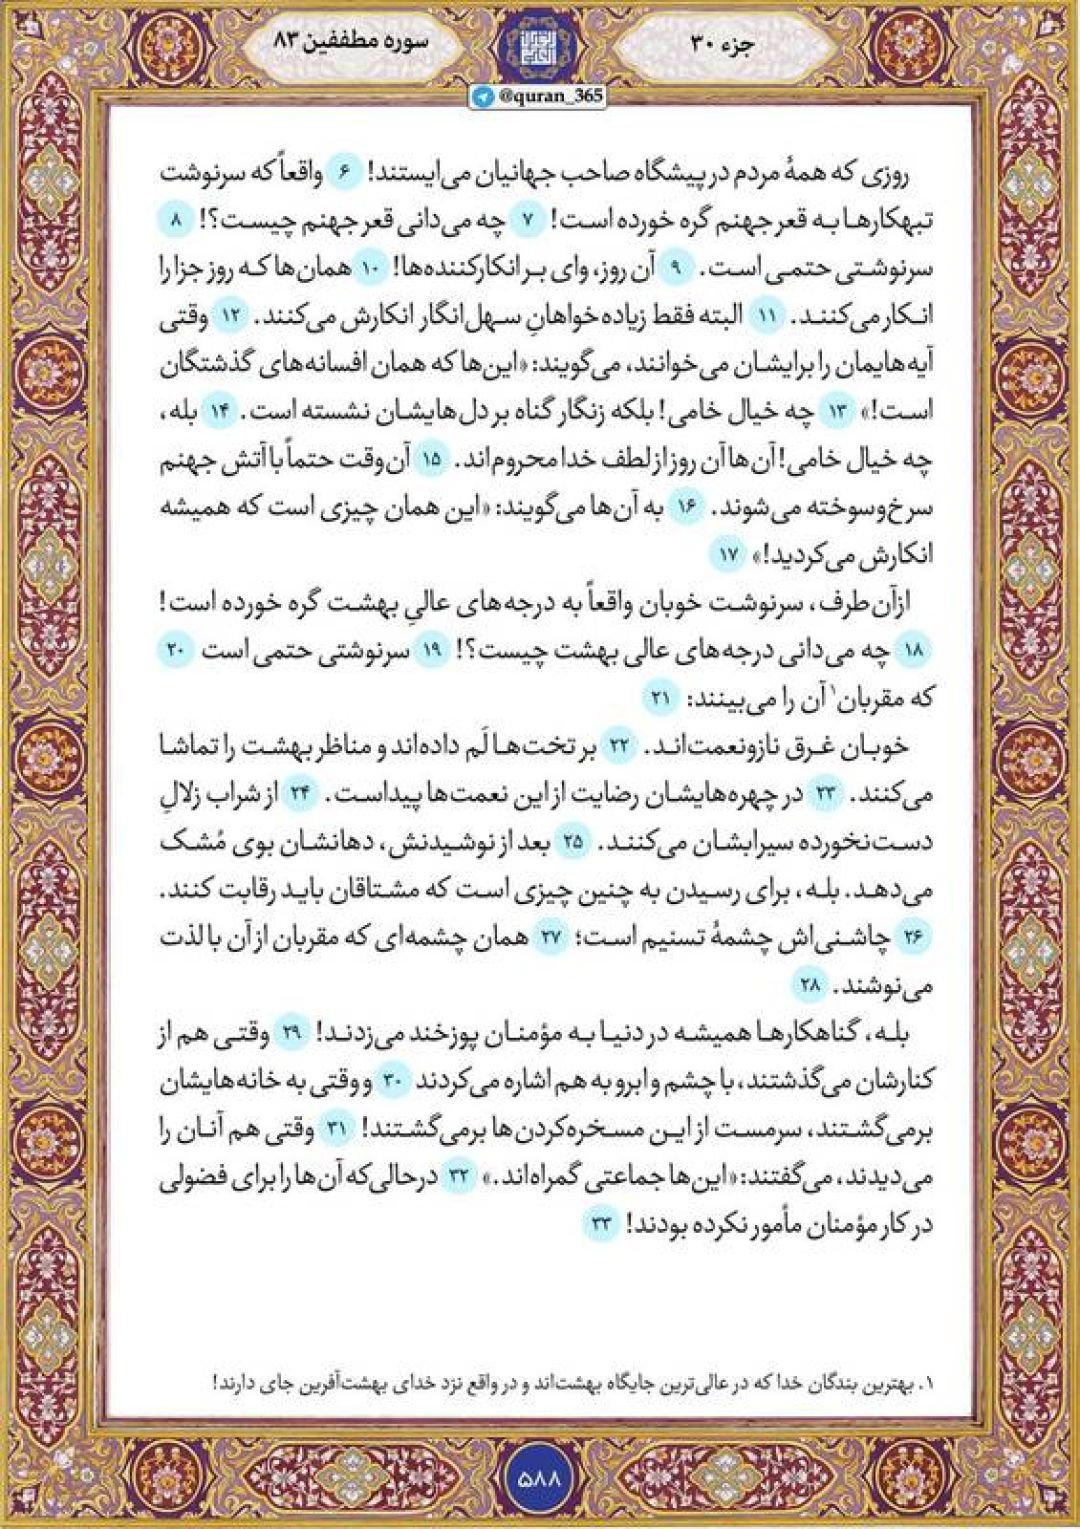 جزء ۳۰
سوره مطففین ۸۳
@quran_365
روزی که همهٔ مردم در پیشگاه صاحب جهانیان می‌ایستند! ۶ واقعاً که سرنوشت
تبهکارها به قعر جهنم گره خورده است! ۷ چه می‌دانی قعر جهنم چیست؟! ۸
سرنوشتی حتمی است. ۹ آن روز، وای بر انکارکننده‌ها! ۱۰ همان‌ها که روز جزا را
انکار می‌کنند. ۱۱ البته فقط زیاده‌خواهانِ سهل‌انگار انکارش می‌کنند. ۱۲ وقتی
آیه‌هایمان را برایشان می‌خوانند، می‌گویند: «این‌ها که همان افسانه‌های گذشتگان
است!» ۱۳ چه خیال خامی! بلکه زنگار گناه بر دل‌هایشان نشسته است. ۱۴ بله،
چه خیال خامی! آن‌ها آن روز از لطف خدا محروم‌اند. ۱۵ آن‌وقت حتماً با آتش جهنم
سرخ‌وسوخته می‌شوند. ۱۶ به آن‌ها می‌گویند: «این همان چیزی است که همیشه
انکارش می‌کردید!» ۱۷
ازآن‌طرف، سرنوشت خوبان واقعاً به درجه‌های عالیِ بهشت گره خورده است!
۱۸ چه می‌دانی درجه‌های عالی بهشت چیست؟! ۱۹ سرنوشتی حتمی است ۲۰
که مقربان۱ آن را می‌بینند: ۲۱
خوبان غرق نازونعمت‌اند. ۲۲ بر تخت‌ها لَم داده‌اند و مناظر بهشت را تماشا
می‌کنند. ۲۳ در چهره‌هایشان رضایت از این نعمت‌ها پیداست. ۲۴ از شراب زلالِ
دست‌نخورده سیرابشان می‌کنند. ۲۵ بعد از نوشیدنش، دهانشان بوی مُشک
می‌دهد. بله، برای رسیدن به چنین چیزی است که مشتاقان باید رقابت کنند.
۲۶ چاشنی‌اش چشمهٔ تسنیم است؛ ۲۷ همان چشمه‌ای که مقربان از آن با لذت
می‌نوشند. ۲۸
بله، گناهکارها همیشه در دنیا به مؤمنان پوزخند می‌زدند! ۲۹ وقتی هم از
کنارشان می‌گذشتند، با چشم و ابرو به هم اشاره می‌کردند ۳۰ و وقتی به خانه‌هایشان
برمی‌گشتند، سرمست از این مسخره‌کردن‌ها برمی‌گشتند! ۳۱ وقتی هم آنان را
می‌دیدند، می‌گفتند: «این‌ها جماعتی گمراه‌اند.» ۳۲ درحالی‌که آن‌ها را برای فضولی
در کار مؤمنان مأمور نکرده بودند! ۳۳
۱. بهترین بندگان خدا که در عالی‌ترین جایگاه بهشت‌اند و در واقع نزد خدای بهشت‌آفرین جای دارند!
۵۸۸